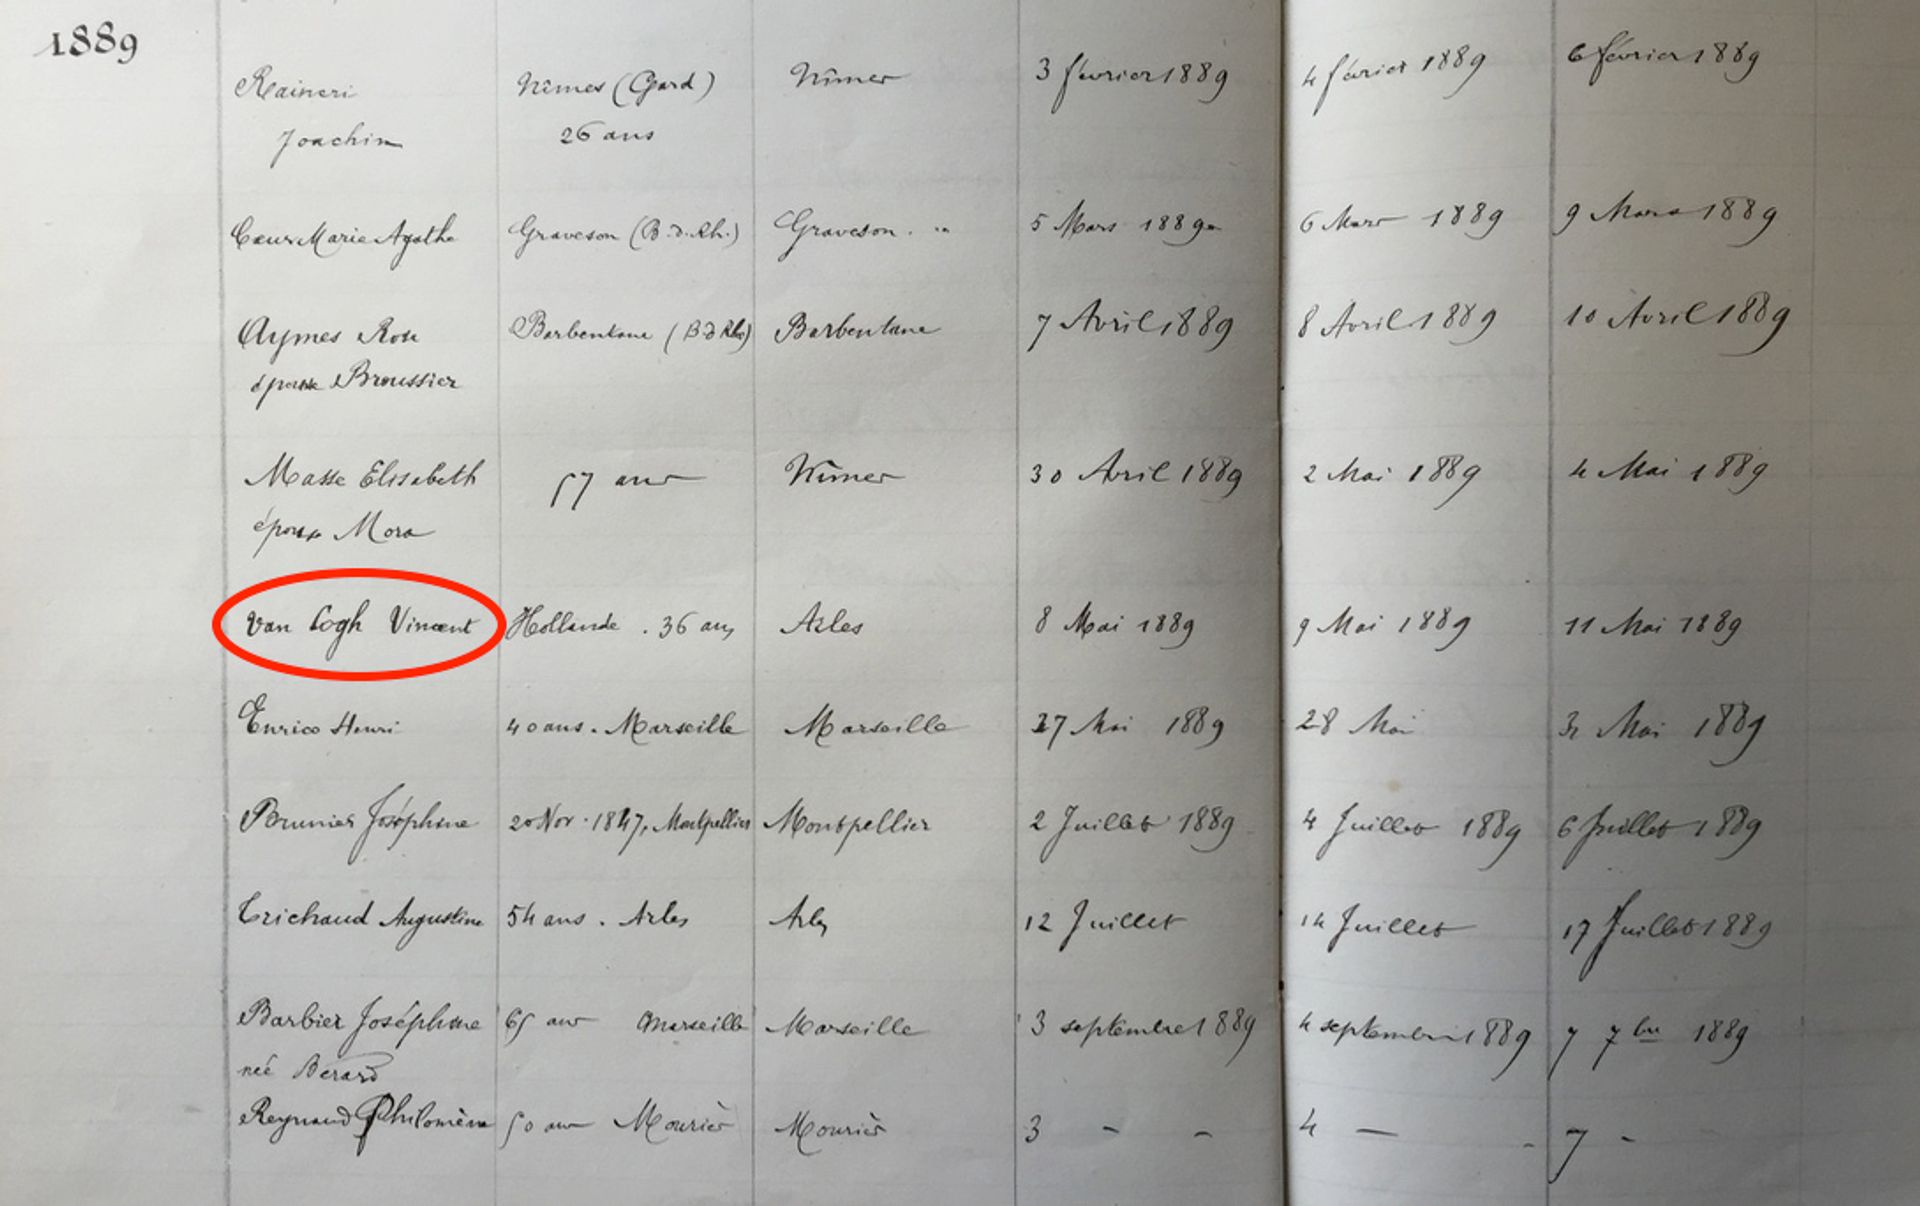 1889
Raineri Nîmes (Gard) Nîmes 3 février 1889 4 février 1889 6 février 1889
Joachim 26 ans
Cœur Marie Agathe Graveson (B.d.Rh.) Graveson. " 5 Mars 1889 6 Mars 1889 9 Mars 1889
Aymes Rose Barbentane (B d Rhô) Barbentane 7 Avril 1889 8 Avril 1889 10 Avril 1889
épouse Broussier
Masse Elisabeth 57 ans Nîmes 30 Avril 1889 2 Mai 1889 4 Mai 1889
épouse Mora
Van Gogh Vincent Hollande. 36 ans Arles 8 Mai 1889 9 Mai 1889 11 Mai 1889
Enrico Henri 40 ans. Marseille Marseille 27 Mai 1889 28 Mai Mai 1889
Brunier Joséphine 20 Nov. 1847, Montpellier Montpellier 2 Juillet 1889 4 Juillet 1889 6 Juillet 1889
Trichaud Augustine 54 ans. Arles Arles 12 Juillet 14 Juillet 17 Juillet 1889
Barbier Joséphine 65 ans Marseille Marseille 3 septembre 1889 4 septembre 1889 7 7bre 1889
née Bérard
Reynaud Philomène 50 ans Mouriès Mouriès 3 - - 4 - - 7 -